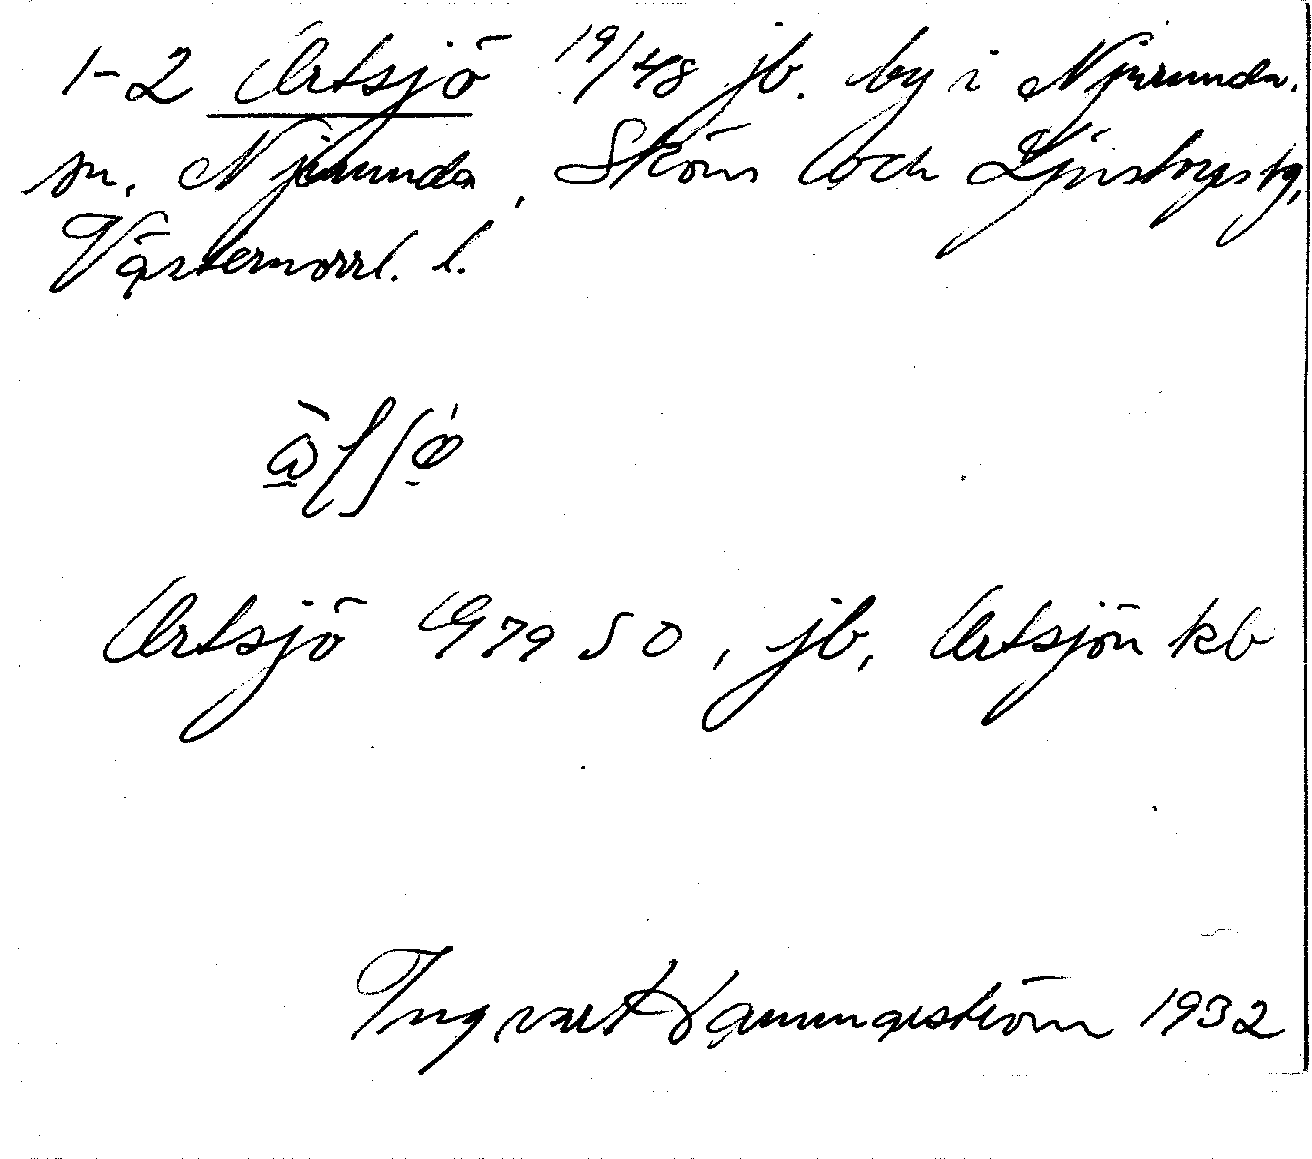 1-2 Ortsjö 19/48 jb. by i Njurunda
sn. Njurunda, Sköns och Ljustorps tg,
Västernorrl. l.
Ortsjö G 79 S O, jb, Ortsjön kb
Ingvar Hammarström 1932